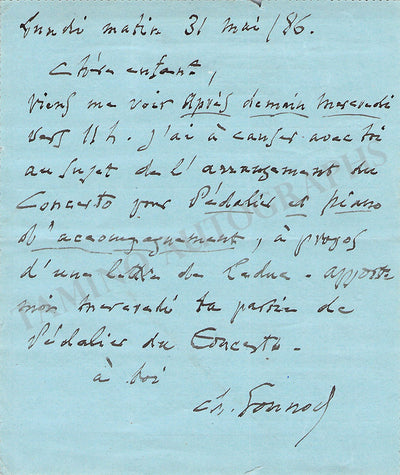 Lundi matin 31 mai /86.
Chère enfant,
viens me voir après demain mercredi
vers 11 h. J'ai à causer avec toi
au sujet de l'arrangement du
Concerto pour Pédalier et piano
d'accompagnement, à propos
d'une lettre de Leduc. apporte
moi mercredi ta partie de
Pédalier du Concerto.
à toi
Ch. Gounod
TAMINO AUTOGRAPHS